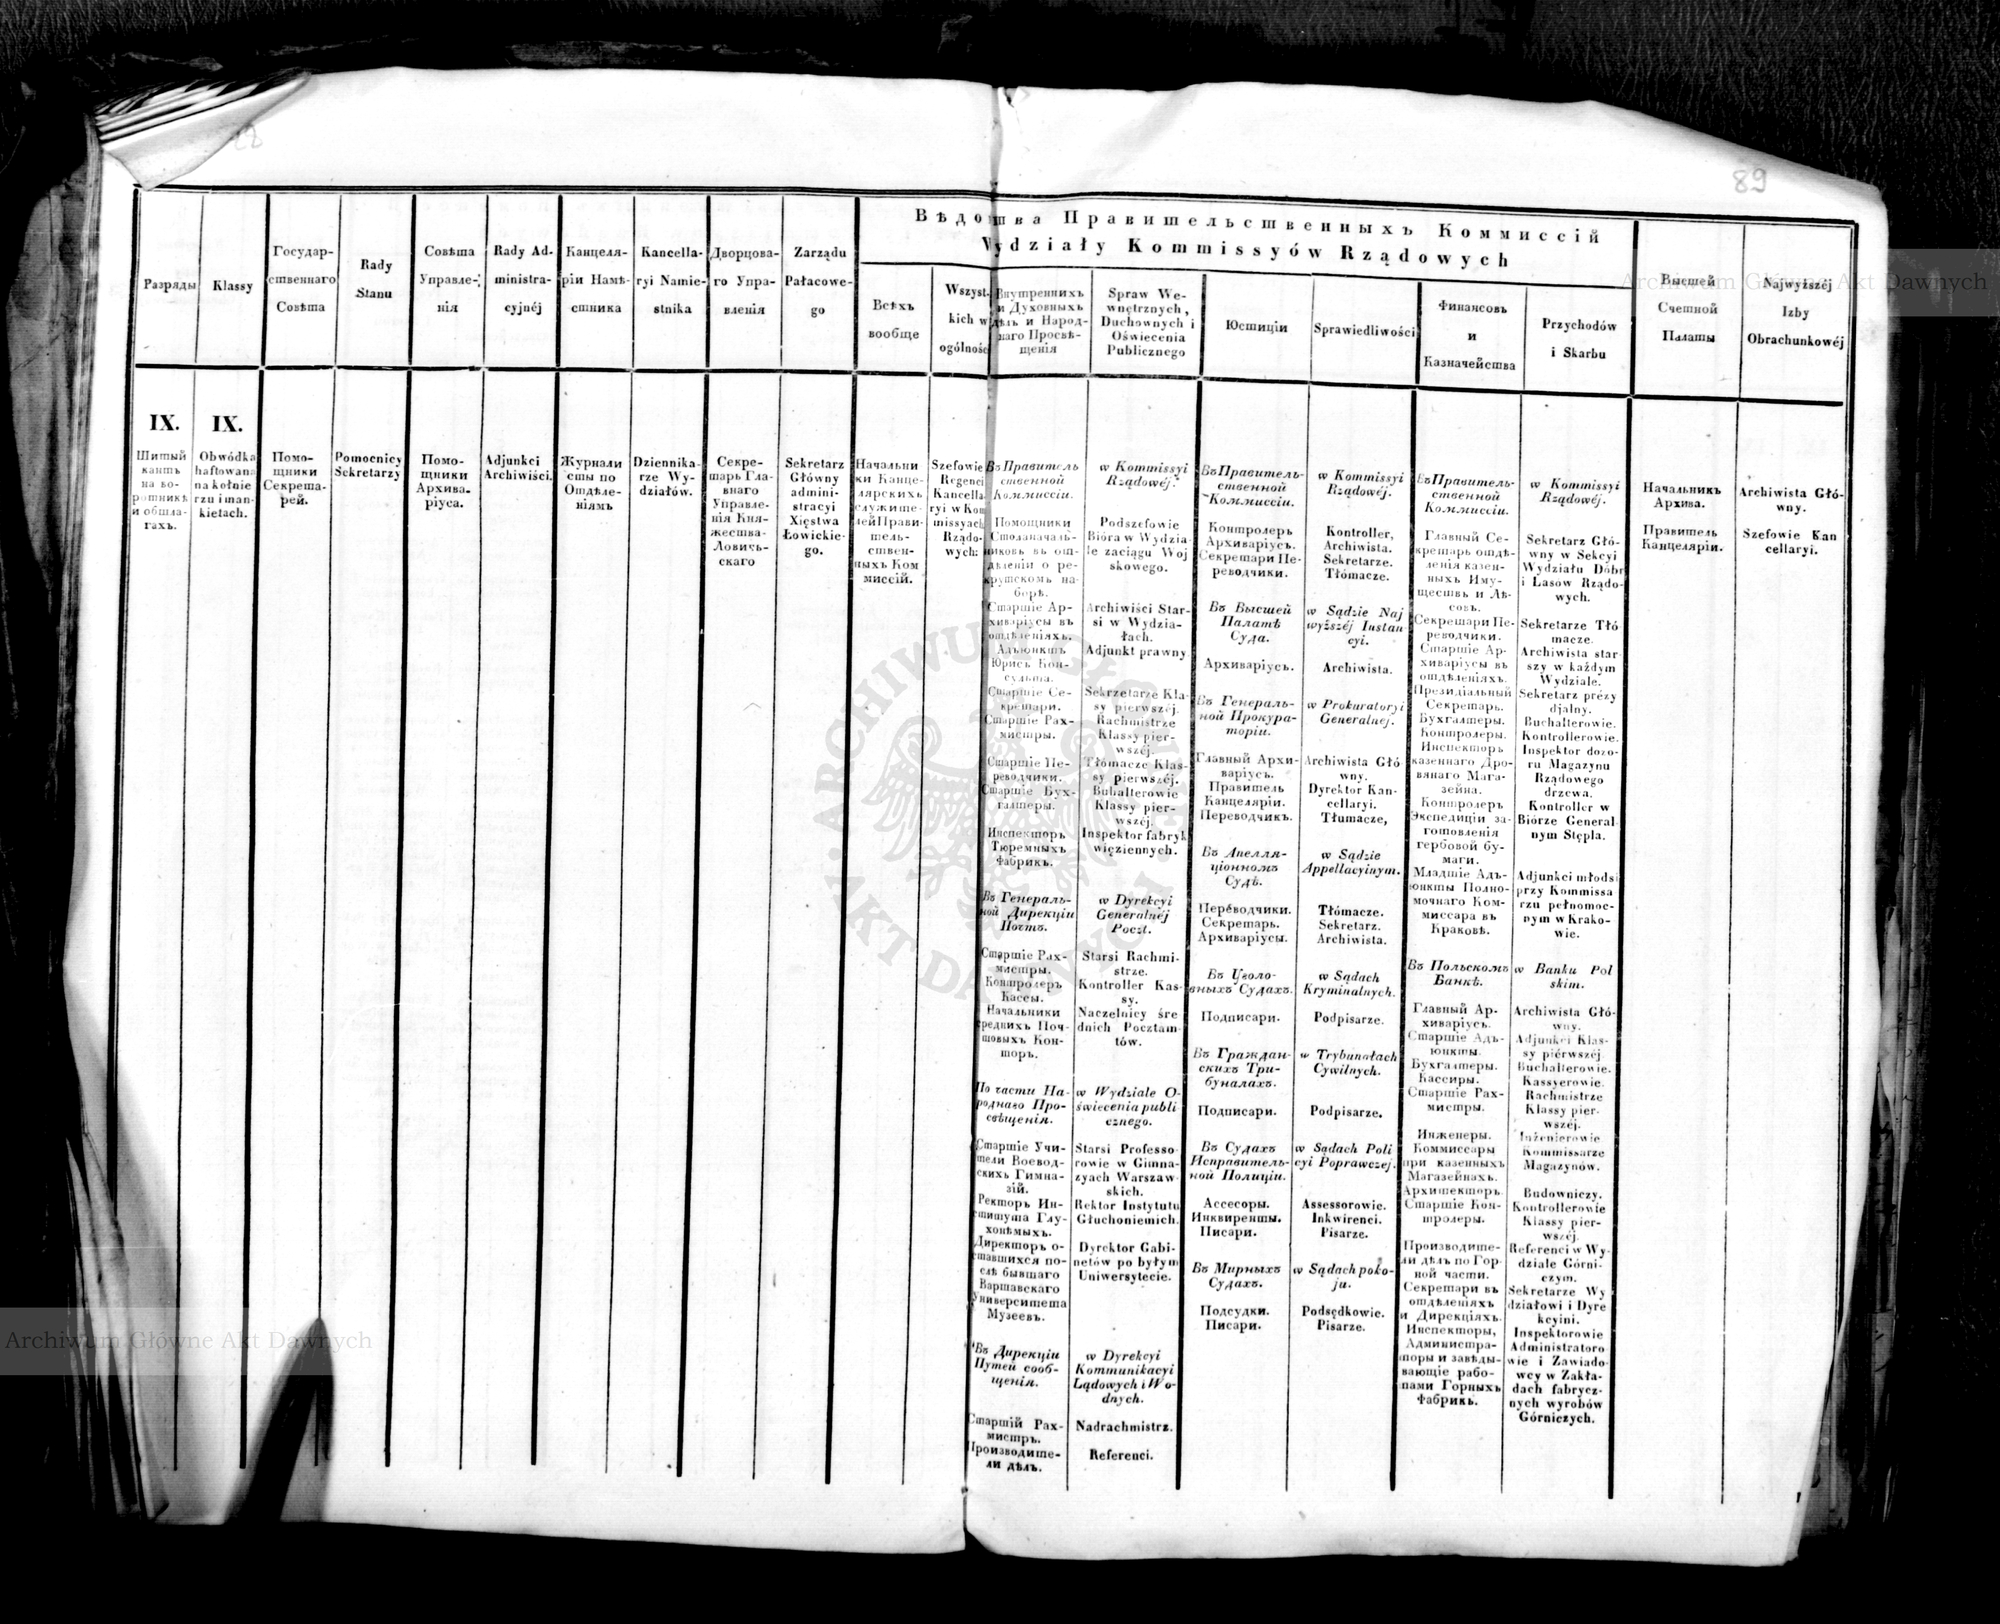 89
Вѣдомства Правительственныхъ Коммиссій
Wydziały Kommissyów Rządowych
Разряды
Klassy
Государ-
ственнаго
Совѣта
Rady
Stanu
Совѣта
Управле-
нія
Rady Ad-
ministra-
cyjnéj
Канцеля-
ріи Намѣ-
стника
Kancella-
ryi Namie-
stnika
Дворцова-
го Упра-
вленія
Zarządu
Pałacowe-
go
Всѣхъ
вообще
Wszyst-
kich w
ogólności
Внутреннихъ
и Духовныхъ
дѣлъ и Народ-
наго Просвѣ-
щенія
Spraw We-
wnętrznych,
Duchownych i
Oświecenia
Publicznego
Юстиціи
Sprawiedliwości
Финансовъ
и
Казначейства
Przychodów
i Skarbu
Высшей
Счетной
Палаты
Najwyższéj
Izby
Obrachunkowéj
IX.
Шитый
кантъ
на во-
ротникѣ
и обшла-
гахъ.
IX.
Obwódka
haftowana
na kołnie
rzu i man-
kietach.
Помо-
щники
Секрета-
рей.
Pomocnicy
Sekretarzy
Помо-
щники
Архива-
ріуса.
Adjunkci
Archiwiści.
Журнали
сты по
Отдѣле-
ніямъ
Dziennika-
rze Wy-
działów.
Секре-
тарь Гла-
внаго
Управле-
нія Кня-
жества-
Ловичь-
скаго
Sekretarz
Główny
admini-
stracyi
Xięstwa
Łowickie-
go.
Начальни
ки Канце-
лярскихъ
служите-
лей Прави-
тель-
ствен-
ныхъ Ком
миссій.
Szefowie
Regenci
Kancella-
ryi w Kom
missyach
Rządo-
wych:
Въ Правитель
ственной
Коммиссіи.
Помощники
Столоначаль-
никовъ въ от-
дѣленіи о ре-
крутскомъ на-
борѣ.
Старшіе Ар-
хиваріусы въ
отдѣленіяхъ.
Адъюнктъ
Юрисъ Кон-
сульта.
Старшіе Се-
кретари.
Старшіе Рах-
мистры.
Старшіе Пе-
реводчики.
Старшіе Бух-
галтеры.
Инспекторъ
Тюремныхъ
Фабрикъ.
Въ Генераль-
ной Дирекціи
Почтъ.
Старшіе Рах-
мистры.
Контролеръ
Кассы.
Начальники
среднихъ Поч-
товыхъ Кон-
торъ.
По части На-
роднаго Про-
свѣщенія.
Старшіе Учи-
тели Воевод-
скихъ Гимна-
зій.
Ректоръ Ин-
ститута Глу-
хонѣмыхъ.
Директоръ о-
ставшихся по-
слѣ бывшаго
Варшавскаго
Университета
Музеевъ.
Въ Дирекціи
Путей сооб-
щенія.
Старшій Рах-
мистръ.
Производите-
ли дѣлъ.
w Kommissyi
Rządowéj.
Podszefowie
Bióra w Wydzia-
le zaciągu Woj
skowego.
Archiwiści Star-
si w Wydzia-
łach.
Adjunkt prawny
Sekrzetarze Kla-
sy pierwszéj.
Rachmistrze
Klassy pier-
wszéj.
Tłómacze Klas-
sy pierwszéj.
Buhalterowie
Klassy pier-
wszéj.
Inspektor fabryk
więziennych.
w Dyrekcyi
Generalnéj
Poczt.
Starsi Rachmi-
strze.
Kontroller Kas-
sy.
Naczelnicy śre
dnich Pocztam
tów.
w Wydziale O-
świecenia publi
cznego.
Starsi Professo
rowie w Gimna-
zyach Warszaw
skich.
Rektor Instytutu
Głuchoniemich.
Dyrektor Gabi-
netów po byłym
Uniwersytecie.
w Dyrekcyi
Kommunikacyi
Lądowych i Wo-
dnych.
Nadrachmistrz.
Referenci.
Въ Правитель-
ственной
Коммиссіи.
Контролеръ
Архиваріусъ.
Секретари Пе-
реводчики.
Въ Высшей
Палатѣ
Суда.
Архиваріусъ.
Въ Генераль-
ной Прокура-
торіи.
Главный Архи-
варіусъ.
Правитель
Канцеляріи.
Переводчикъ.
Въ Апелля-
ціонномъ
Судѣ.
Переводчики.
Секретарь.
Архиваріусы.
Въ Уголо-
вныхъ Судахъ.
Подписари.
Въ Граждан-
скихъ Три-
буналахъ.
Подписари.
Въ Судахъ
Исправитель-
ной Полиціи.
Ассесоры.
Инквиренты.
Писари.
Въ Мирныхъ
Судахъ.
Подсудки.
Писари.
w Kommissyi
Rządowéj.
Kontroller,
Archiwista.
Sekretarze.
Tłómacze.
w Sądzie Naj
wyższéj Instan
cyi.
Archiwista.
w Prokuratoryi
Generalnej.
Archiwista Głó
wny.
Dyrektor Kan-
cellaryi.
Tłumacze,
w Sądzie
Appellacyinym.
Tłómacze.
Sekretarz.
Archiwista.
w Sądach
Kryminalnych.
Podpisarze.
w Trybunałach
Cywilnych.
Podpisarze.
w Sądach Poli
cyi Poprawczej.
Assessorowie.
Inkwirenci.
Pisarze.
w Sądach poko-
ju.
Podsędkowie.
Pisarze.
Въ Правитель-
ственной
Коммиссіи.
Главный Се-
кретарь отдѣ-
ленія казен-
ныхъ Иму-
ществъ и Лѣ-
совъ.
Секретари Пе-
реводчики.
Старшіе Ар-
хиваріусы въ
отдѣленіяхъ.
Президіальный
Секретарь.
Бухгалтеры.
Контролеры.
Инспекторъ
казеннаго Дро-
вянаго Мага-
зейна.
Контролеръ
Экспедиціи за-
готовленія
гербовой бу-
маги.
Младшіе Адъ-
юнкты Полно-
мочнаго Ком-
миссара въ
Краковѣ.
Въ Польскомъ
Банкѣ.
Главный Ар-
хиваріусъ.
Старшіе Адъ-
юнкты.
Бухгалтеры.
Кассиры.
Старшіе Рах-
мистры.
Инженеры.
Коммиссары
при казенныхъ
Магазейнахъ.
Архитекторъ.
Старшіе Кон-
тролеры.
Производите-
ли дѣлъ по Гор-
ной части.
Секретари въ
отдѣленіяхъ
и Дирекціяхъ.
Инспекторы,
Администра-
торы и завѣды-
вающіе рабо-
тами Горныхъ
Фабрикъ.
w Kommissyi
Rządowéj.
Sekretarz Głó-
wny w Sekcyi
Wydziału Dóbr
i Lasow Rządo-
wych.
Sekretarze Tłó-
macze.
Archiwista star-
szy w każdym
Wydziale.
Sekretarz prézy
djalny.
Buchalterowie.
Kontrollerowie.
Inspektor dozo-
ru Magazynu
Rządowego
drzewa.
Kontroller w
Biórze General
nym Stępla.
Adjunkci młodsi
przy Kommissa
rzu pełnomoc-
nym w Krako-
wie.
w Banku Pol
skim.
Archiwista Głó-
wny.
Adjunkci Klas-
sy piérwszéj
Buchalterowie.
Kassyerowie.
Rachmistrze
Klassy pier-
wszéj.
Inżenierowie
Kommissarze
Magazynów.
Budowniczy.
Kontrollerowie
Klassy pier-
wszéj.
Referenci w Wy-
dziale Górni-
czym.
Sekretarze Wy
działowi i Dyre
kcyini.
Inspektorowie
Administratoro
wie i Zawiado-
wcy w Zakła-
dach fabrycz-
nych wyrobów
Górniczych.
Начальникъ
Архива.
Правитель
Канцеляріи.
Archiwista Głó-
wny.
Szefowie Kan
cellaryi.
Archiwum Główne Akt Dawnych
Archiwum Główne Akt Dawnych
ARCHIWUM GŁÓWNE AKT DAWNYCH